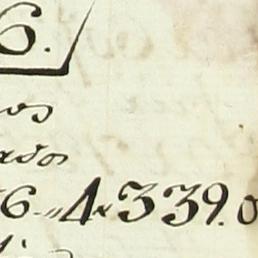 6.
os
ados
6.,,4x339.0